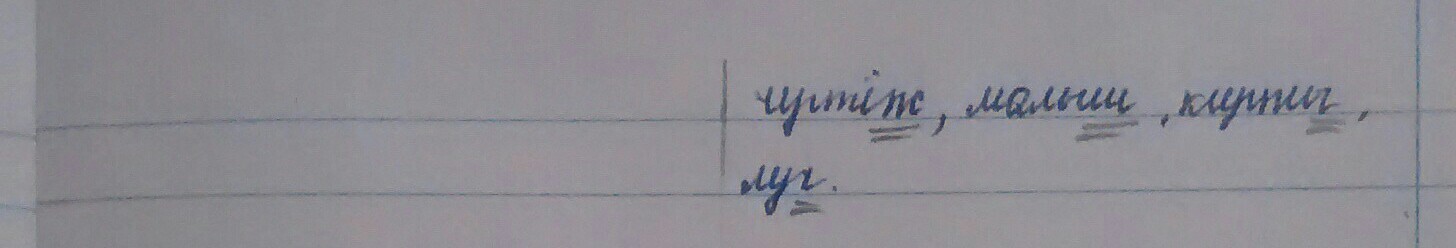 чертёж, малыш, кирпич,
луч.